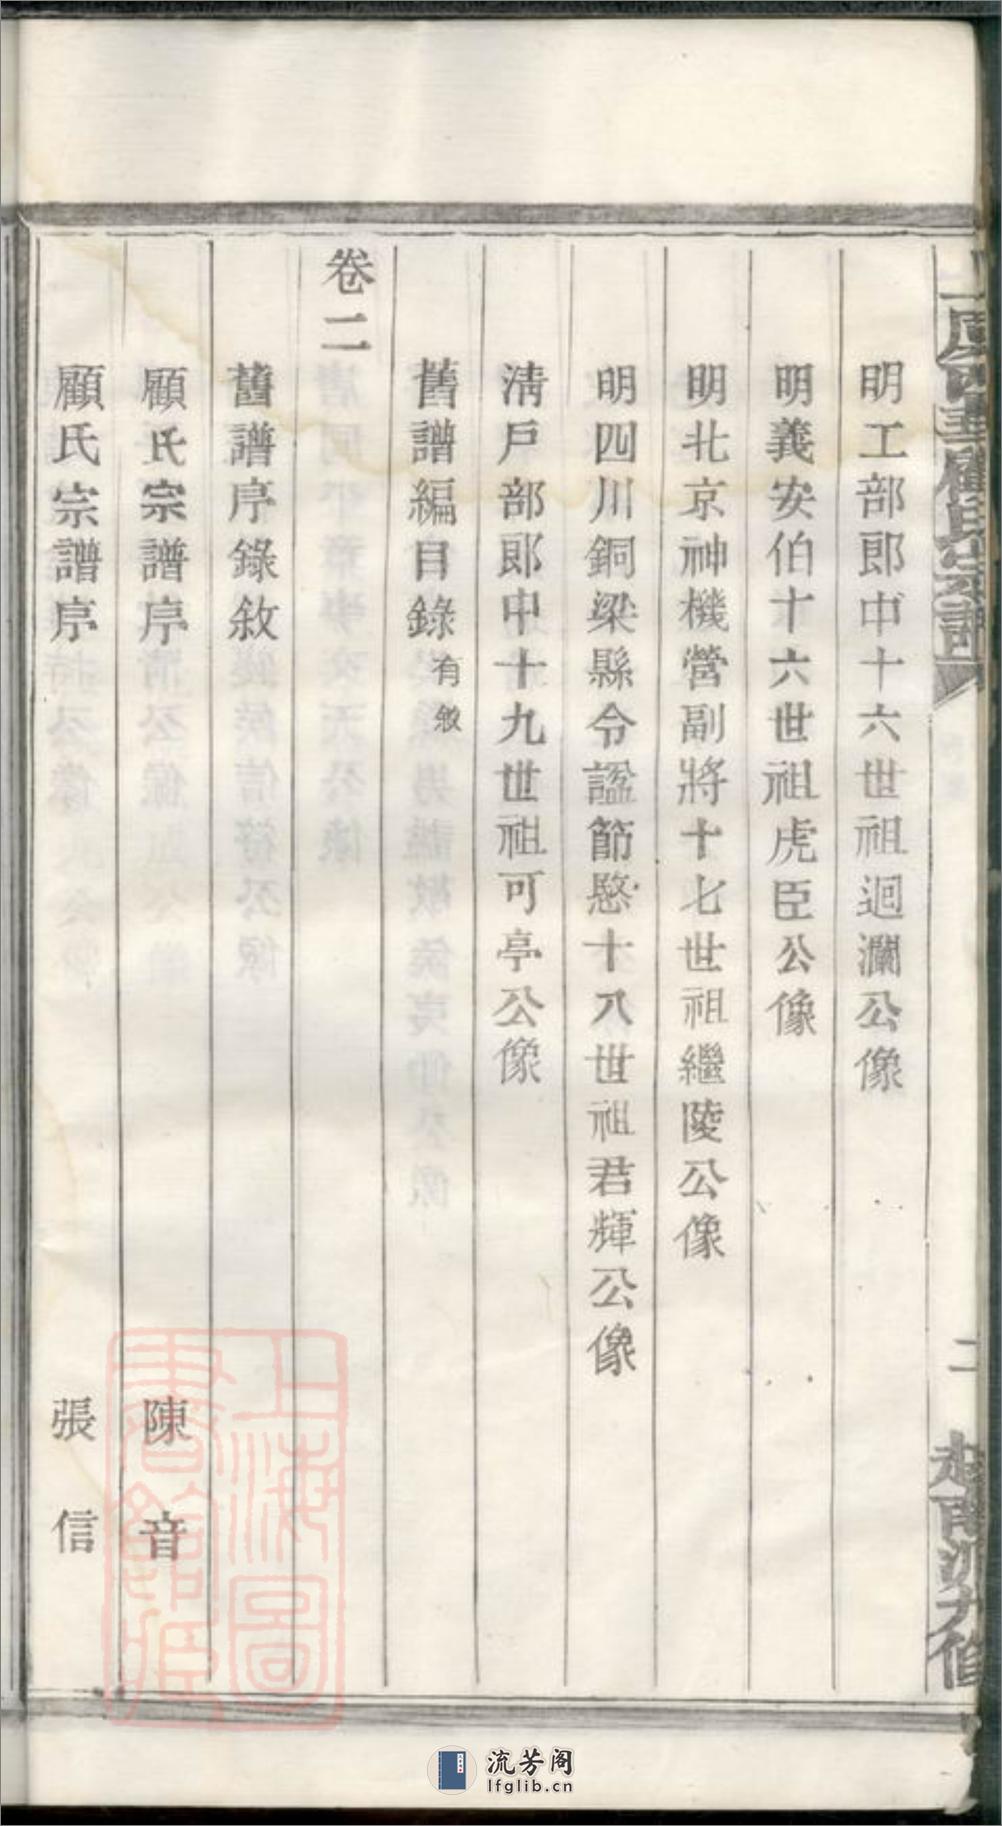 明工部郎中十六世祖迴瀾公像
明義安伯十六世祖虎臣公像
明北京神機營副將十七世祖繼陵公像
明四川銅梁縣令諡節愍十八世祖君輝公像
淸戶部郎中十九世祖可亭公像
舊譜編目錄有敘
卷二
舊譜序錄敘
顧氏宗譜序 陳音
顧氏宗譜序 張信
二
上海圖書館藏
流芳阁
lfglib.cn